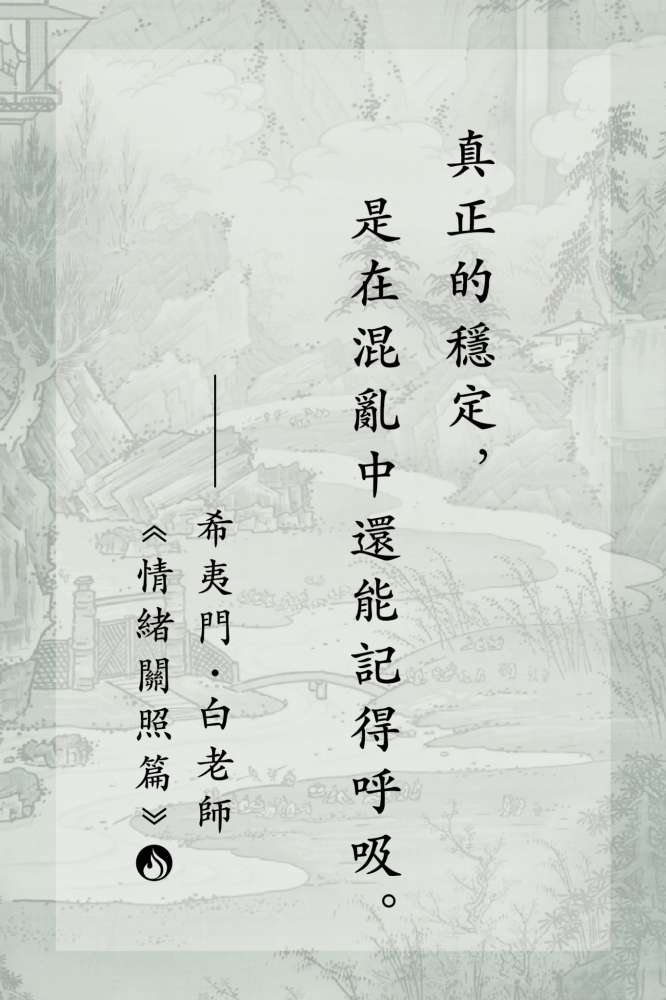 真正的穩定，
是在混亂中還能記得呼吸。
——希夷門・白老師
《情緒關照篇》